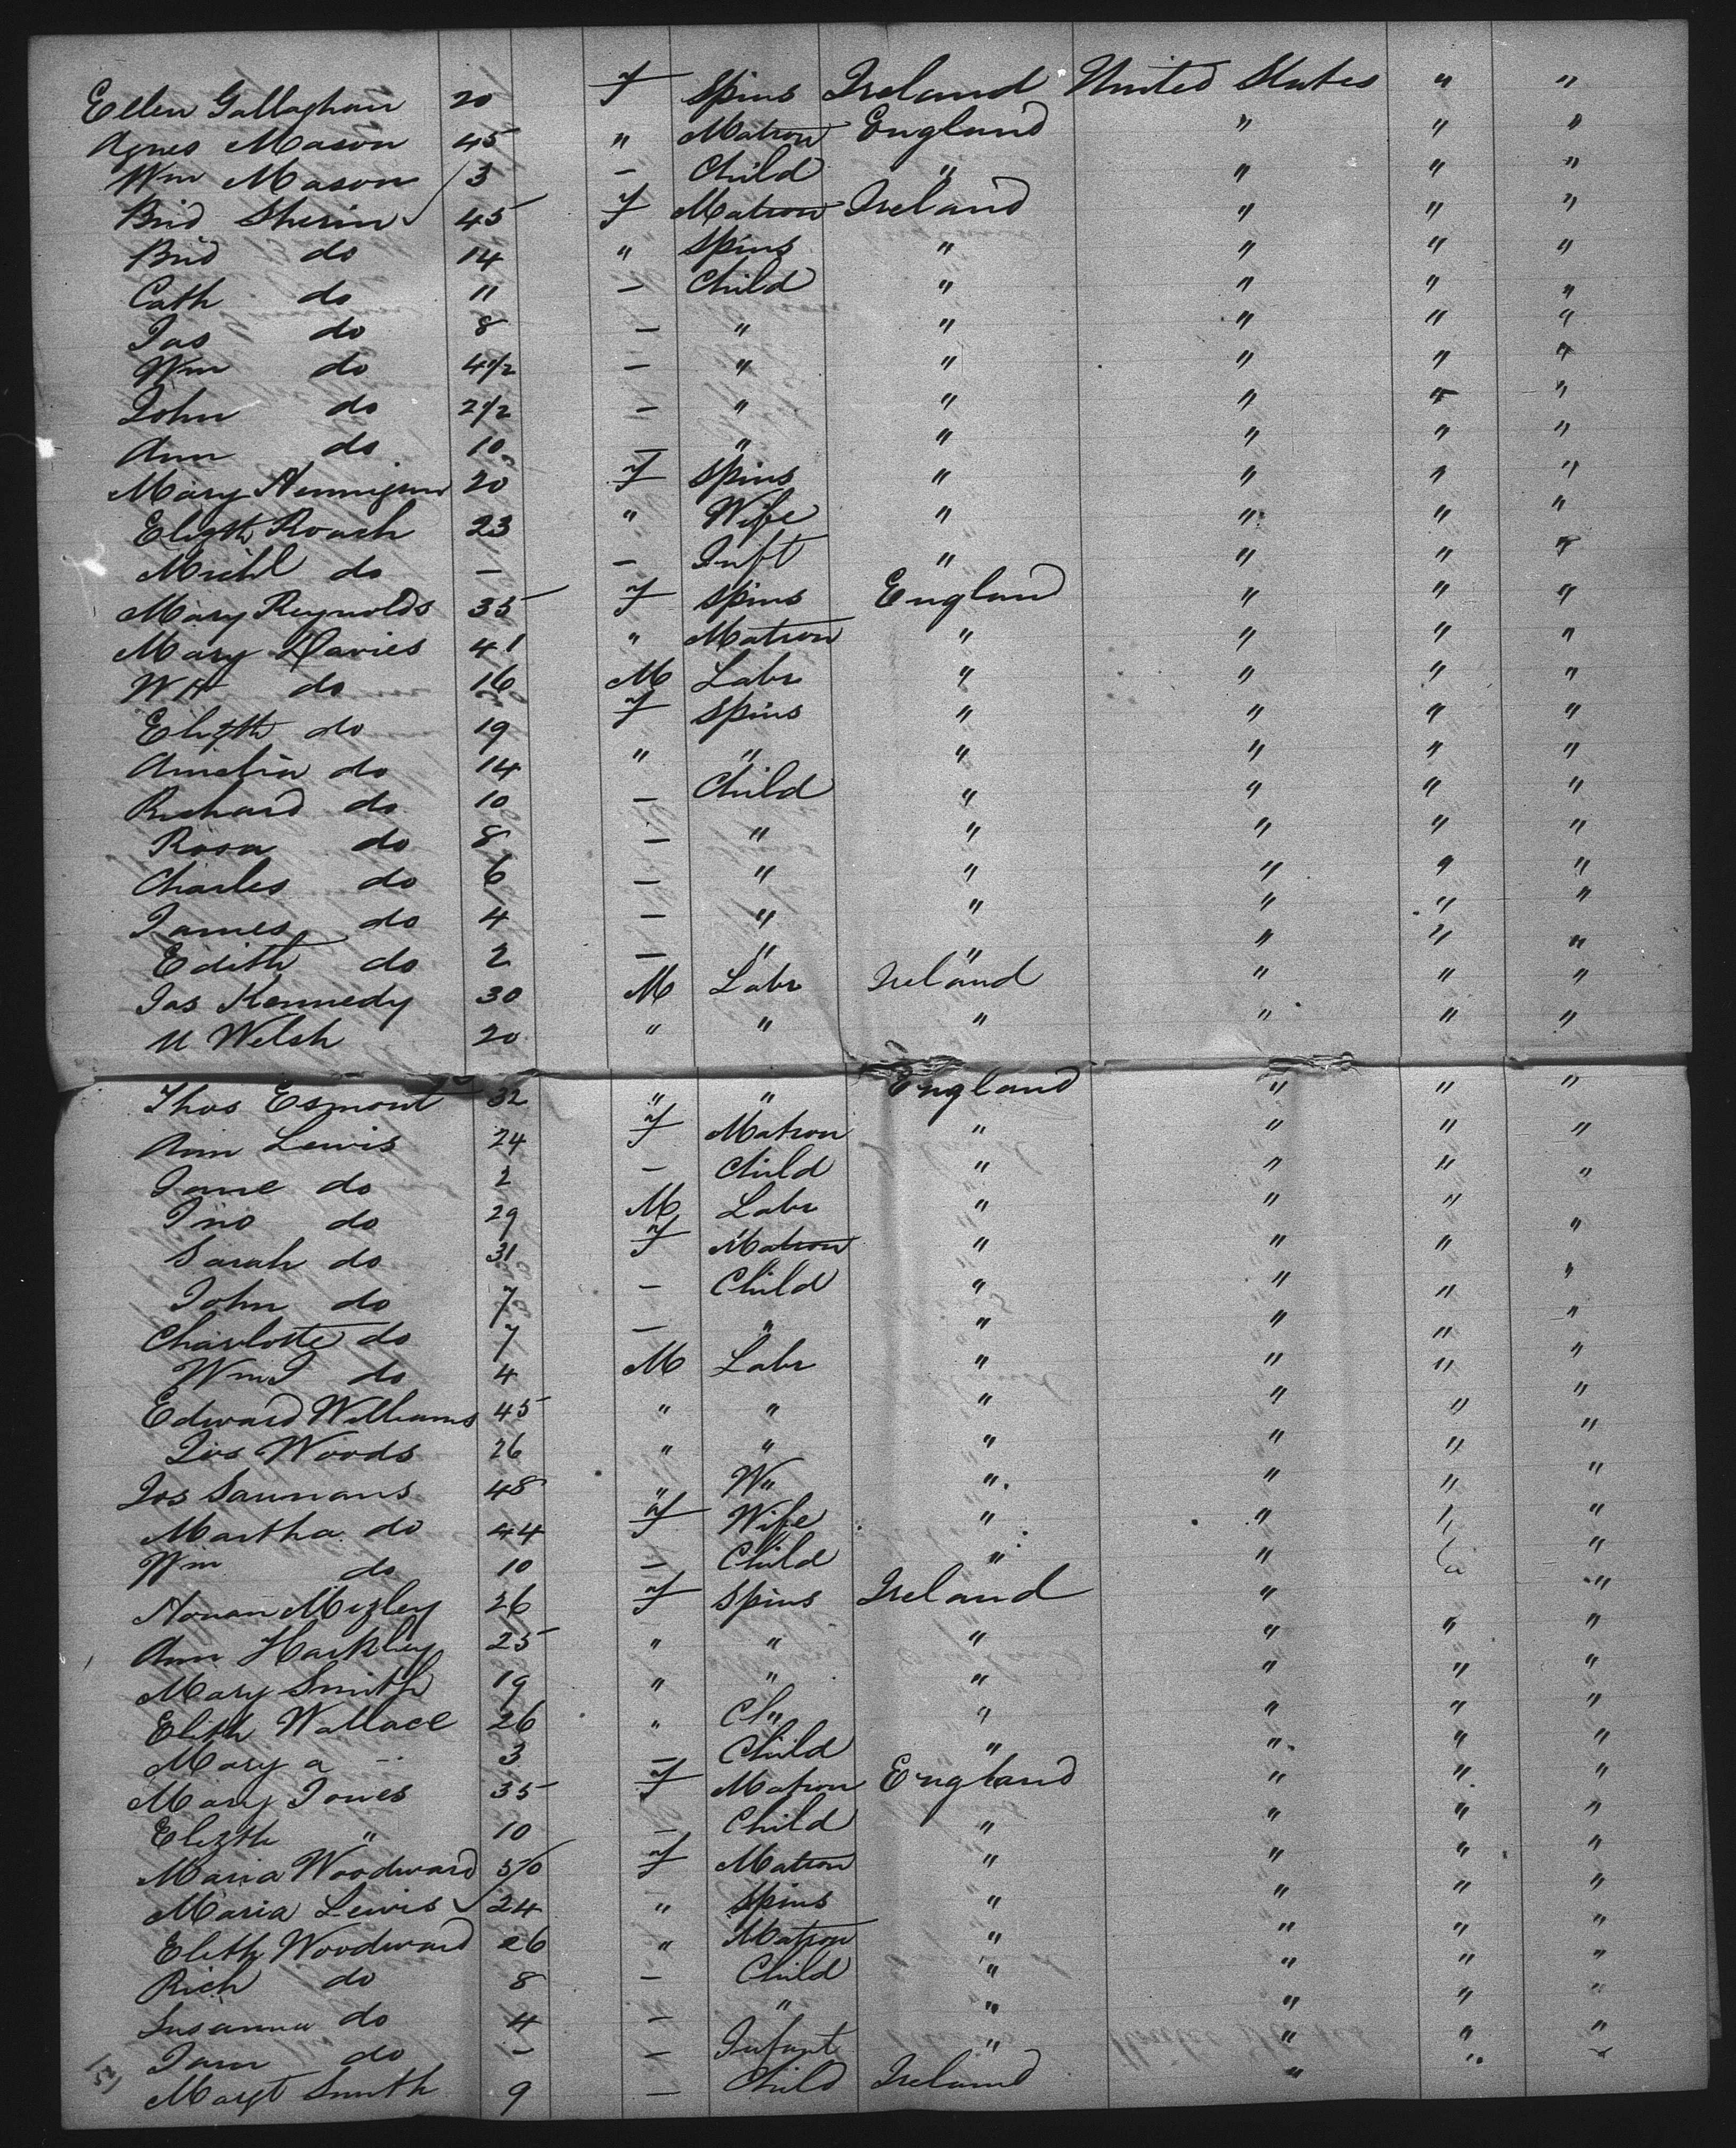 Ellen Gallaghan 20 F Spins Ireland United States " "
Agnes Mason 45 " Matron England " " "
Wm Mason 3 - Child " " " "
Brid Sherin 45 F Matron Ireland " " "
Brid do 14 " Spins " " " "
Cath do 11 - Child " " " "
Jas do 8 - " " " " "
Wm do 4 1/2 - " " " " "
John do 2 1/2 - " " " " "
Ann do 10 - " " " " "
Mary Hennigan 20 F Spins " " " "
Elizth Roach 23 " Wife " " " "
Michl do - - Inft " " " "
Mary Reynolds 35 F Spins England " " "
Mary Davies 41 " Matron " " " "
W H do 16 M Labr " " " "
Elizth do 19 F Spins " " " "
Amelia do 14 " " " " " "
Richard do 10 - Child " " " "
Rosa do 8 - " " " " "
Charles do 6 - " " " " "
James do 4 - " " " " "
Edith do 2 - " " " " "
Jas Kennedy 30 M Labr Ireland " " "
M Welsh 20 " " " " " "
Thos Esmont 32 " " England " " "
Ann Lewis 24 F Matron " " " "
Jane do 2 - Child " " " "
Jno do 29 M Labr " " "
Sarah do 31 F Matron " " " "
John do 7 - Child " " " "
Charlotte do 7 - " " " " "
Wm J do 4 M Labr " " " "
Edward Williams 45 " " " " " "
Jos Woods 26 " " " " " "
Jos Saunans 48 " W" " " " "
Martha do 44 F Wife " " " "
Wm do 10 - Child " " " "
26 F Spins Ireland " "
Ann Harkley 25 " " " " " "
Mary Smith 19 " " " " " "
Elith Wallace 26 " Ch" " " " "
Mary A " 3 - Child " " " "
Mary Jones 35 F Matron England " " "
Elizth " 10 - Child " " " "
Maria Woodward 50 F Matron " " " "
Maria Lewis 24 " Spins " " " "
Elith Woodward 26 " Matron " " " "
Rich do 8 - Child " " " "
Susanna do 4 - " " " " "
Jam do - - Infant " " " "
Margt Smith 9 - Child Ireland " " "